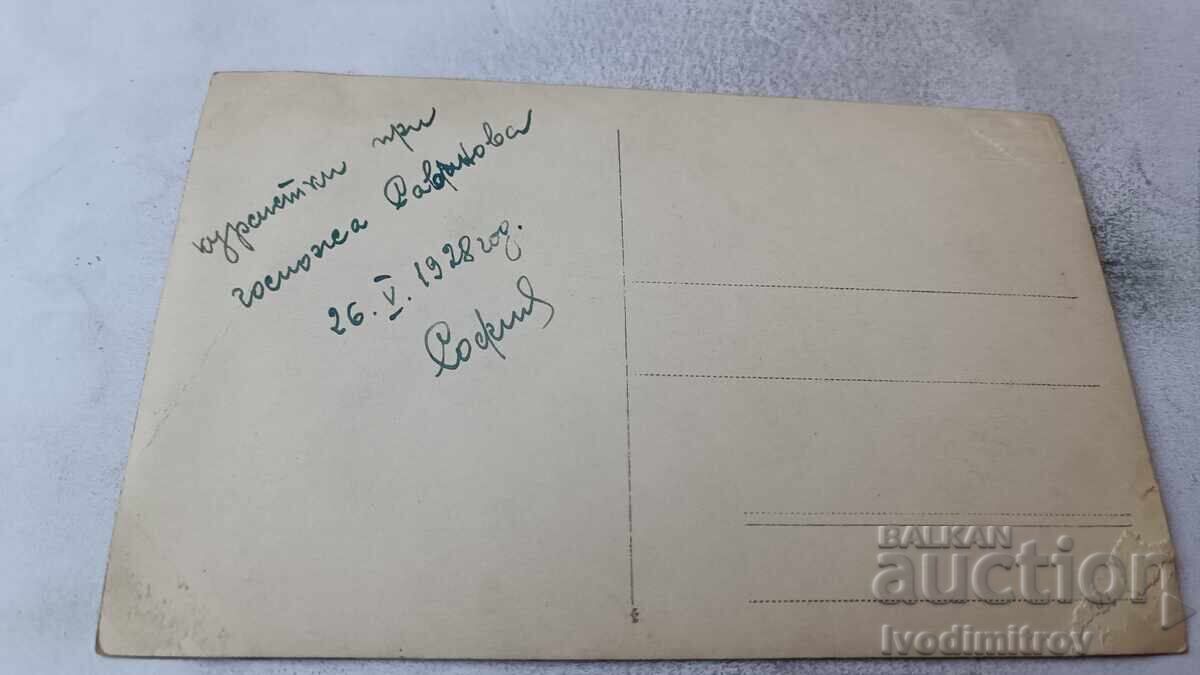 курсистки при
госпожа
26.V.1928 год.
София
BALKAN
auction
Ivodimitrov